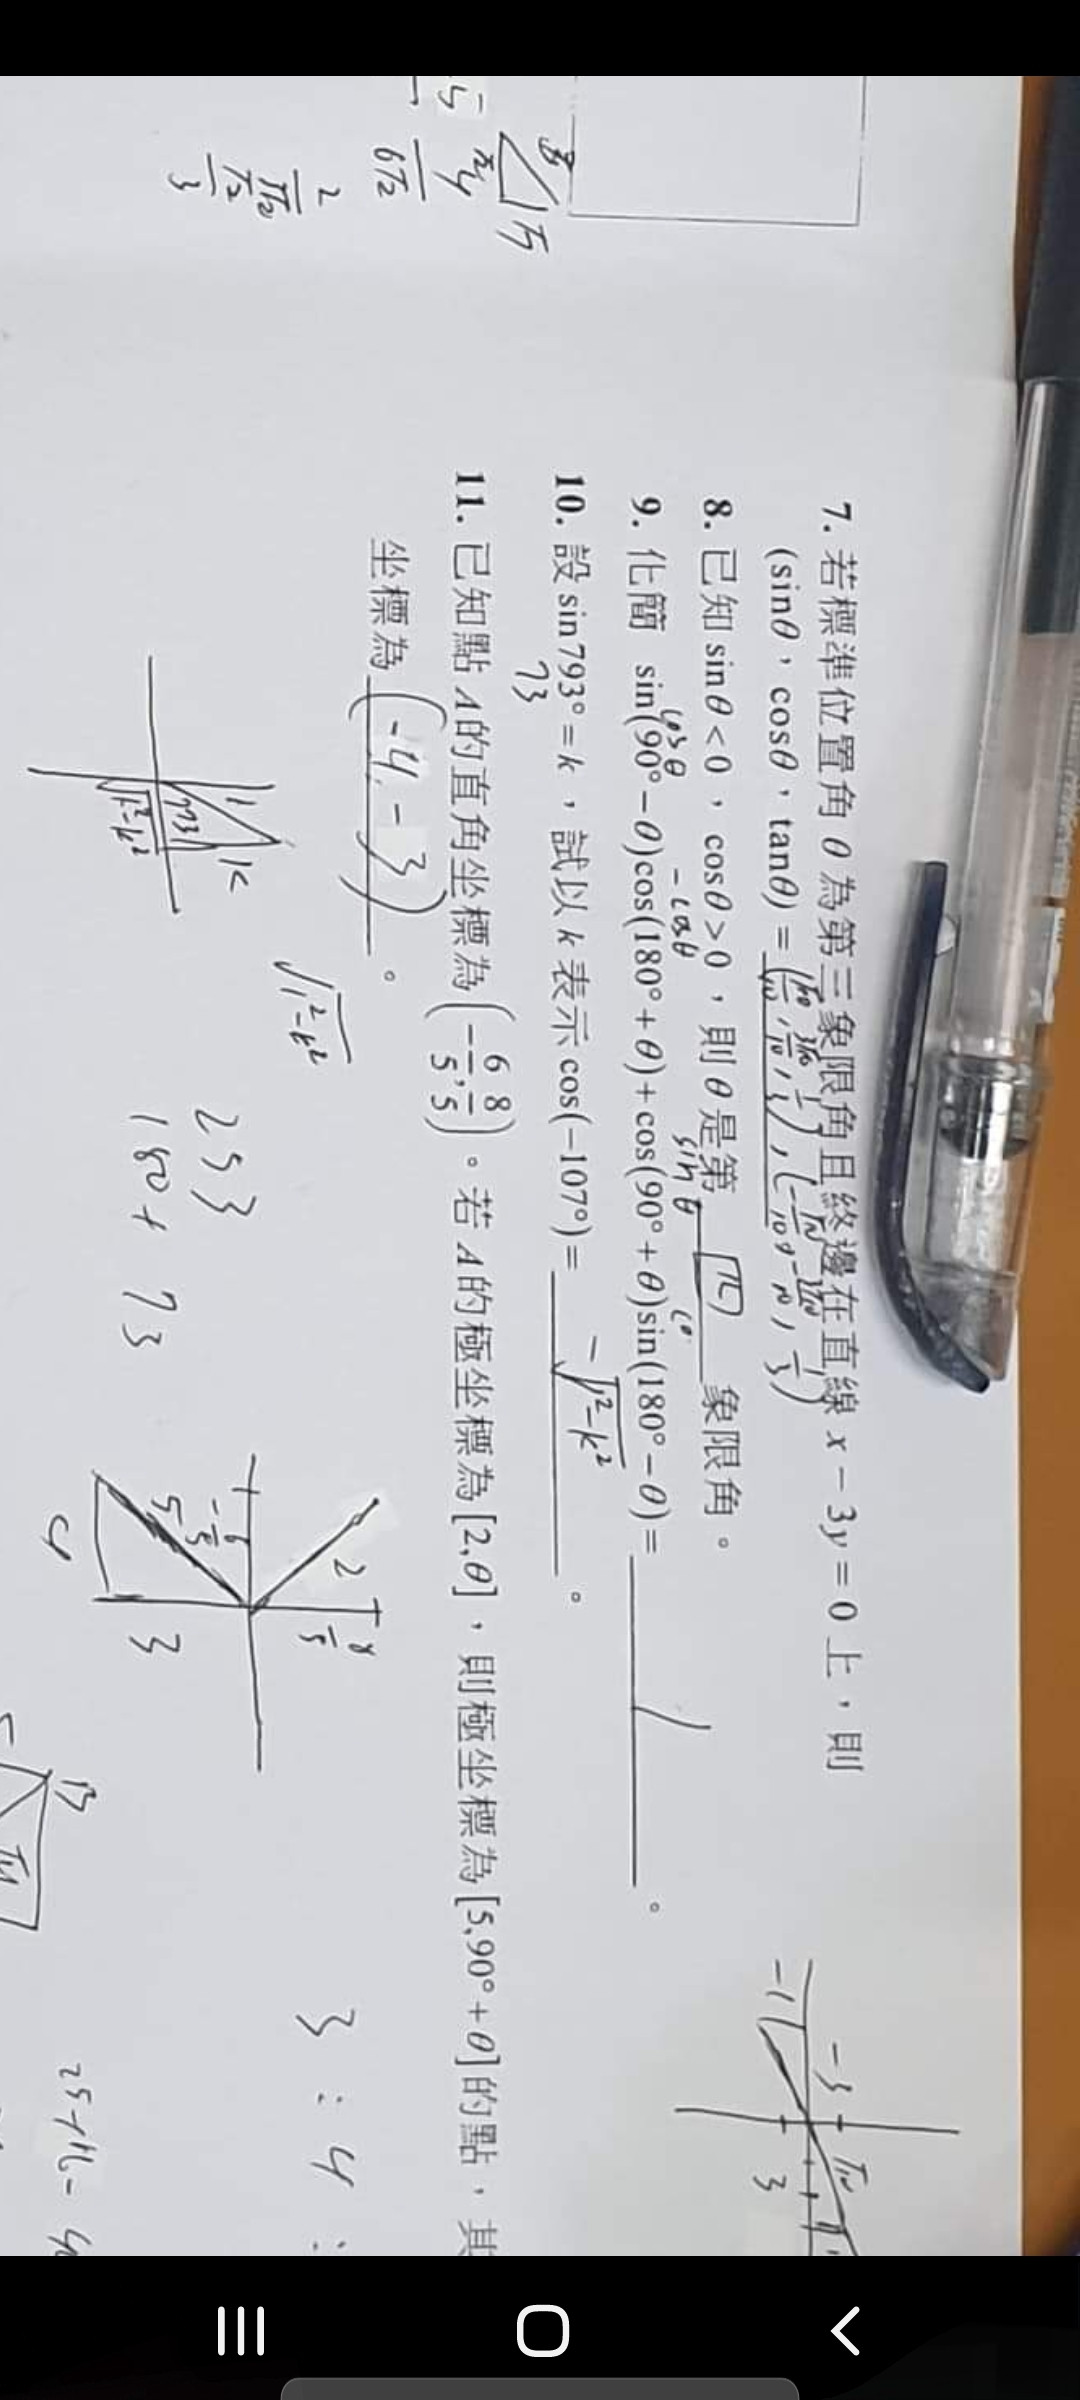 7. 若標準位置角 θ 為第三象限角且終邊在直線 x − 3y = 0 上，則
(sinθ，cosθ，tanθ) =
8. 已知 sinθ < 0，cosθ > 0，則 θ 是第 四 象限角。
cosθ -cosθ sinθ
9. 化簡 sin(90° − θ)cos(180° + θ) + cos(90° + θ)sin(180° − θ) =
10. 設 sin793° = k，試以 k 表示 cos(−107°) = -√(1²-k²)。
73
11. 已知點 A 的直角坐標為 (−6/5, 8/5)。若 A 的極坐標為 [2,θ]，則極坐標為 [5,90° + θ] 的點，其
坐標為 (-4, -3)。
√(1²-k²)
1
k
√(1²-k²)
253
180 + 73
2
8/5
-6/5
5
3
4
3 : 4 :
-1
-3
3
√10
B
6√2